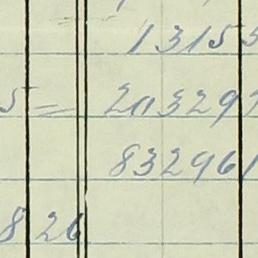 13153
5 = 203293
832961
8 26